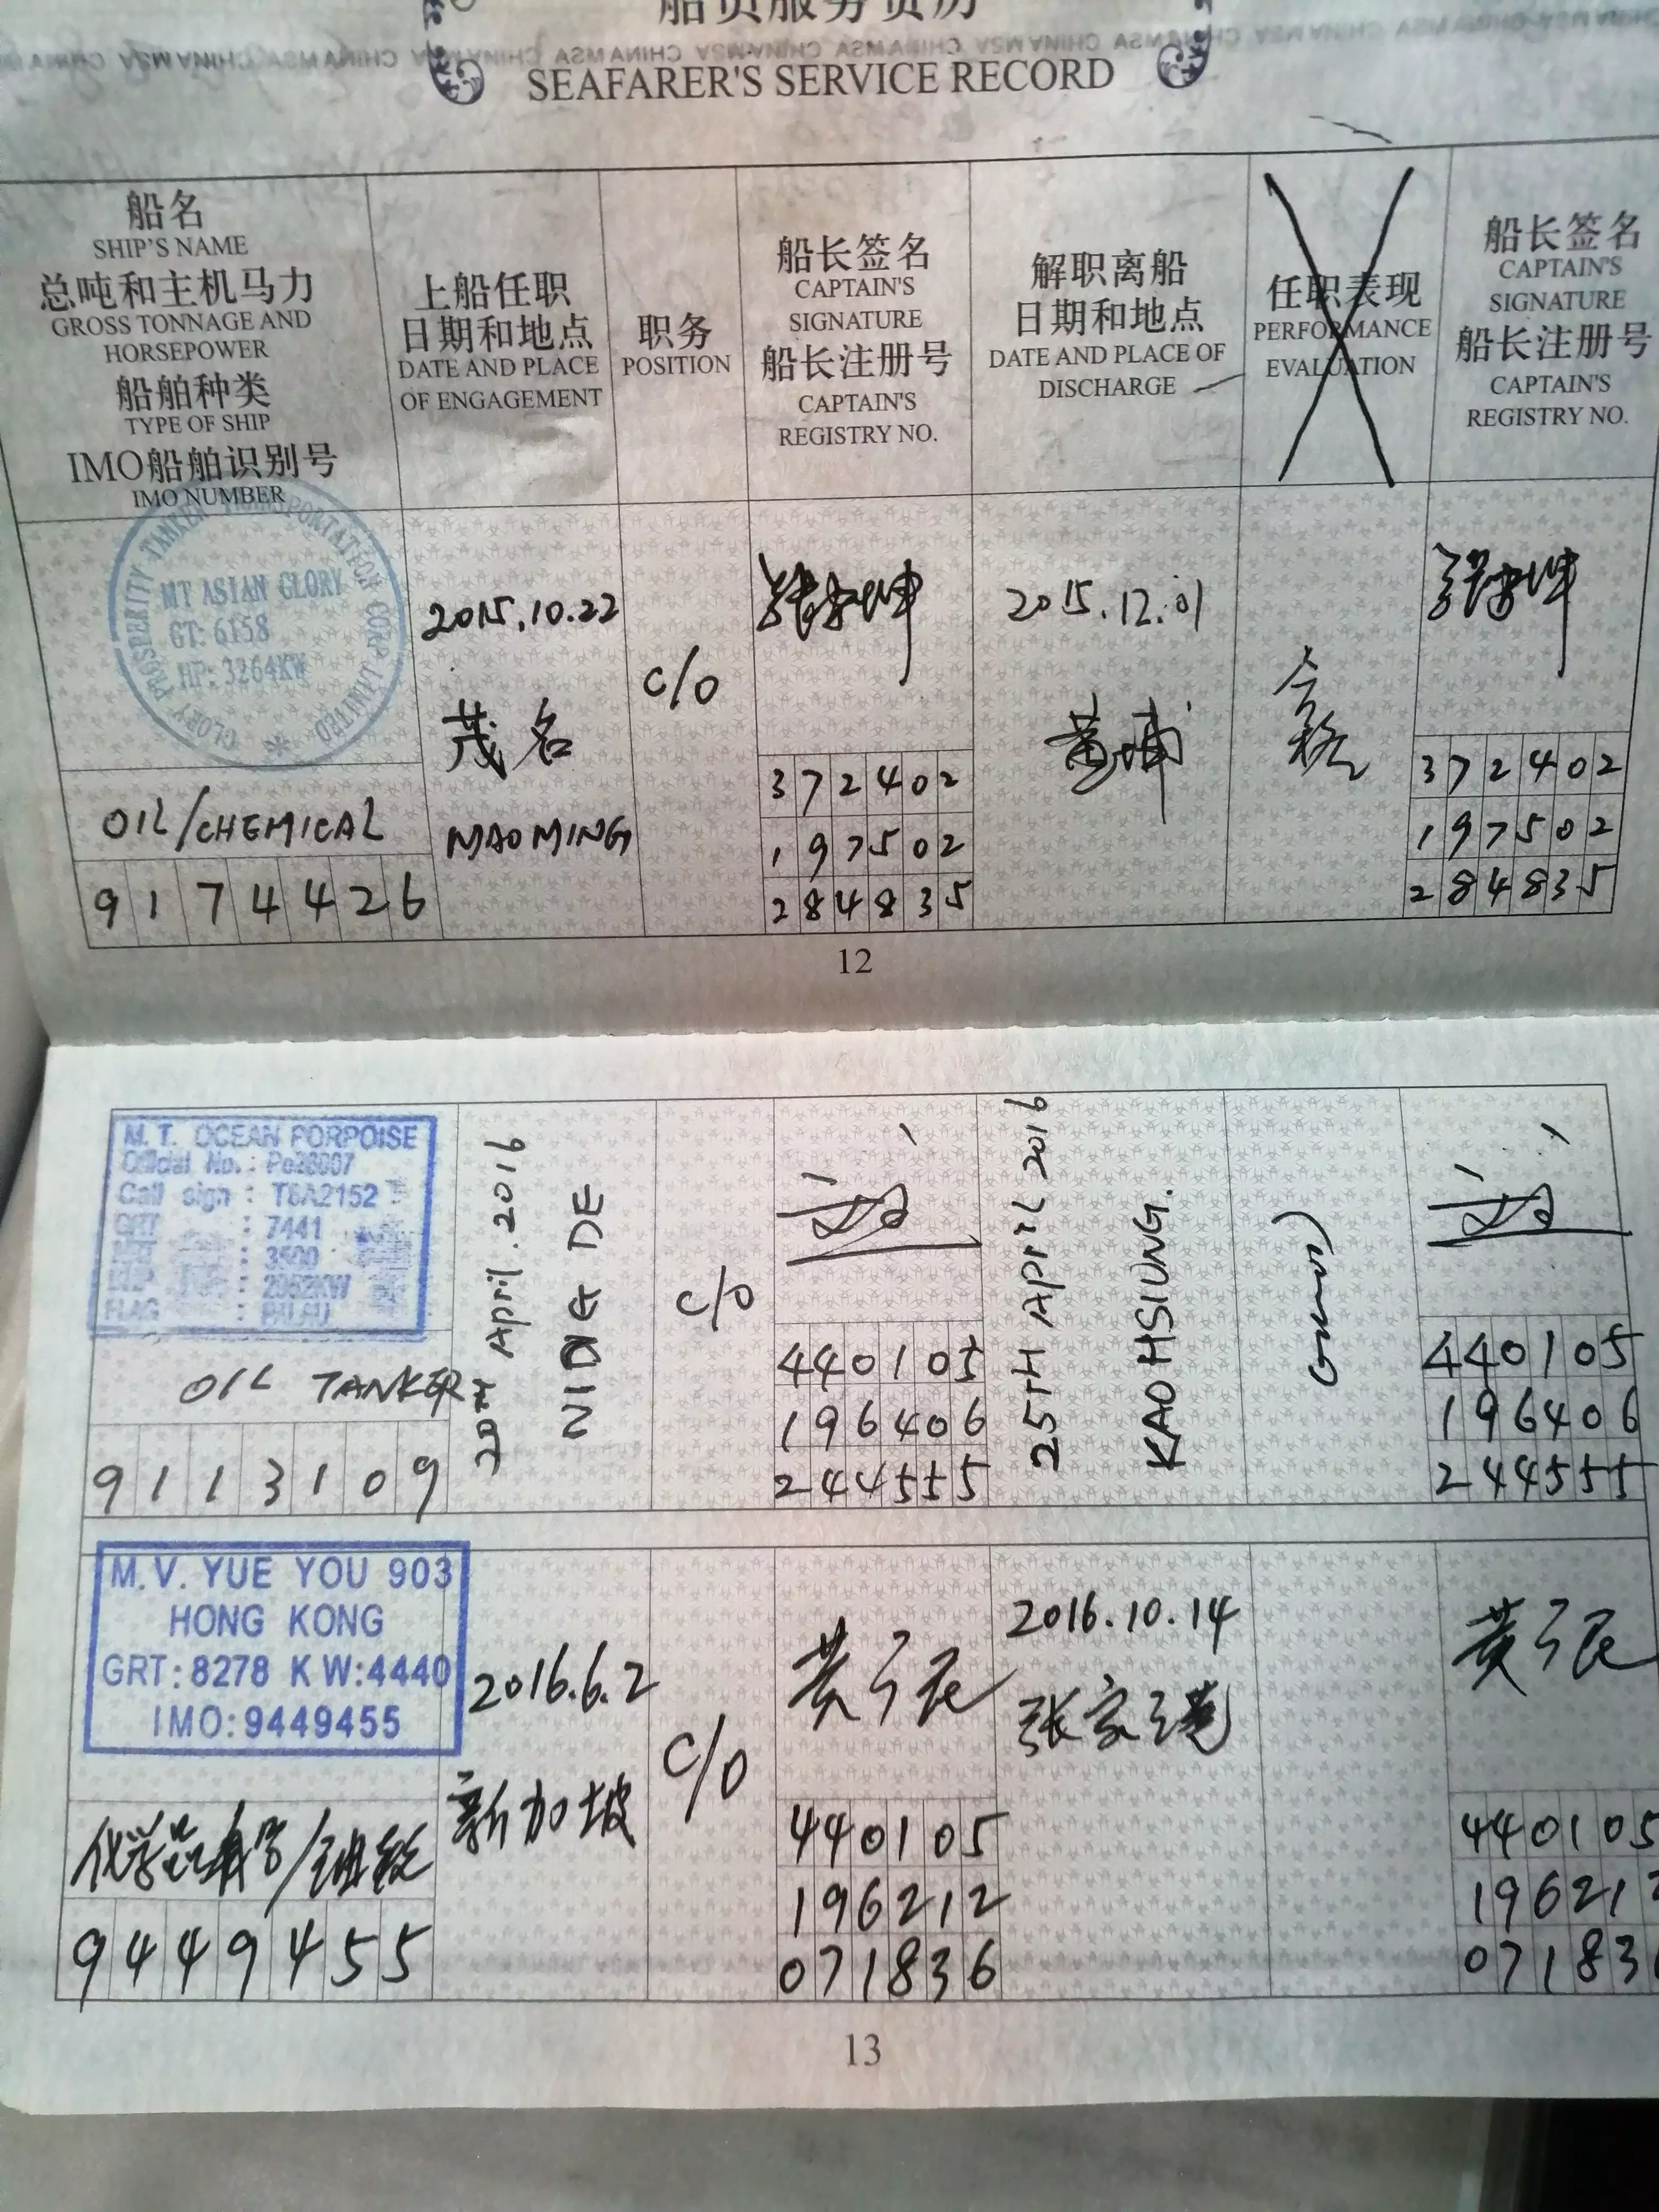 船员服务资历
SEAFARER'S SERVICE RECORD
船名
SHIP'S NAME
总吨和主机马力
GROSS TONNAGE AND
HORSEPOWER
船舶种类
TYPE OF SHIP
IMO船舶识别号
IMO NUMBER
上船任职
日期和地点
DATE AND PLACE
OF ENGAGEMENT
职务
POSITION
船长签名
CAPTAIN'S
SIGNATURE
船长注册号
CAPTAIN'S
REGISTRY NO.
解职离船
日期和地点
DATE AND PLACE OF
DISCHARGE
任职表现
PERFORMANCE
EVALUATION
船长签名
CAPTAIN'S
SIGNATURE
船长注册号
CAPTAIN'S
REGISTRY NO.
GLORY PROSPERITY TANKER TRANSPORTATION CORP LIMITED
MT ASIAN GLORY
GT: 6158
HP: 3264KW
OIL/CHEMICAL
9174426
2015.10.22
茂名
MAOMING
C/O
372402
197502
284835
2015.12.01
黄埔
合格
372402
197502
284835
12
M.T. OCEAN PORPOISE
Official No.:
Call sign : T8A2152
GRT : 7441
: 3500
: 2952KW
FLAG : PALAU
OIL TANKER
9113109
20TH April.2016
NING DE
C/O
440105
196406
244555
25TH April 2016
KAOHSIUNG.
440105
196406
244555
M.V. YUE YOU 903
HONG KONG
GRT:8278 KW:4440
IMO:9449455
9449455
2016.6.2
新加坡
C/O
440105
196212
071836
2016.10.14
张家港
440105
19621
07183
13